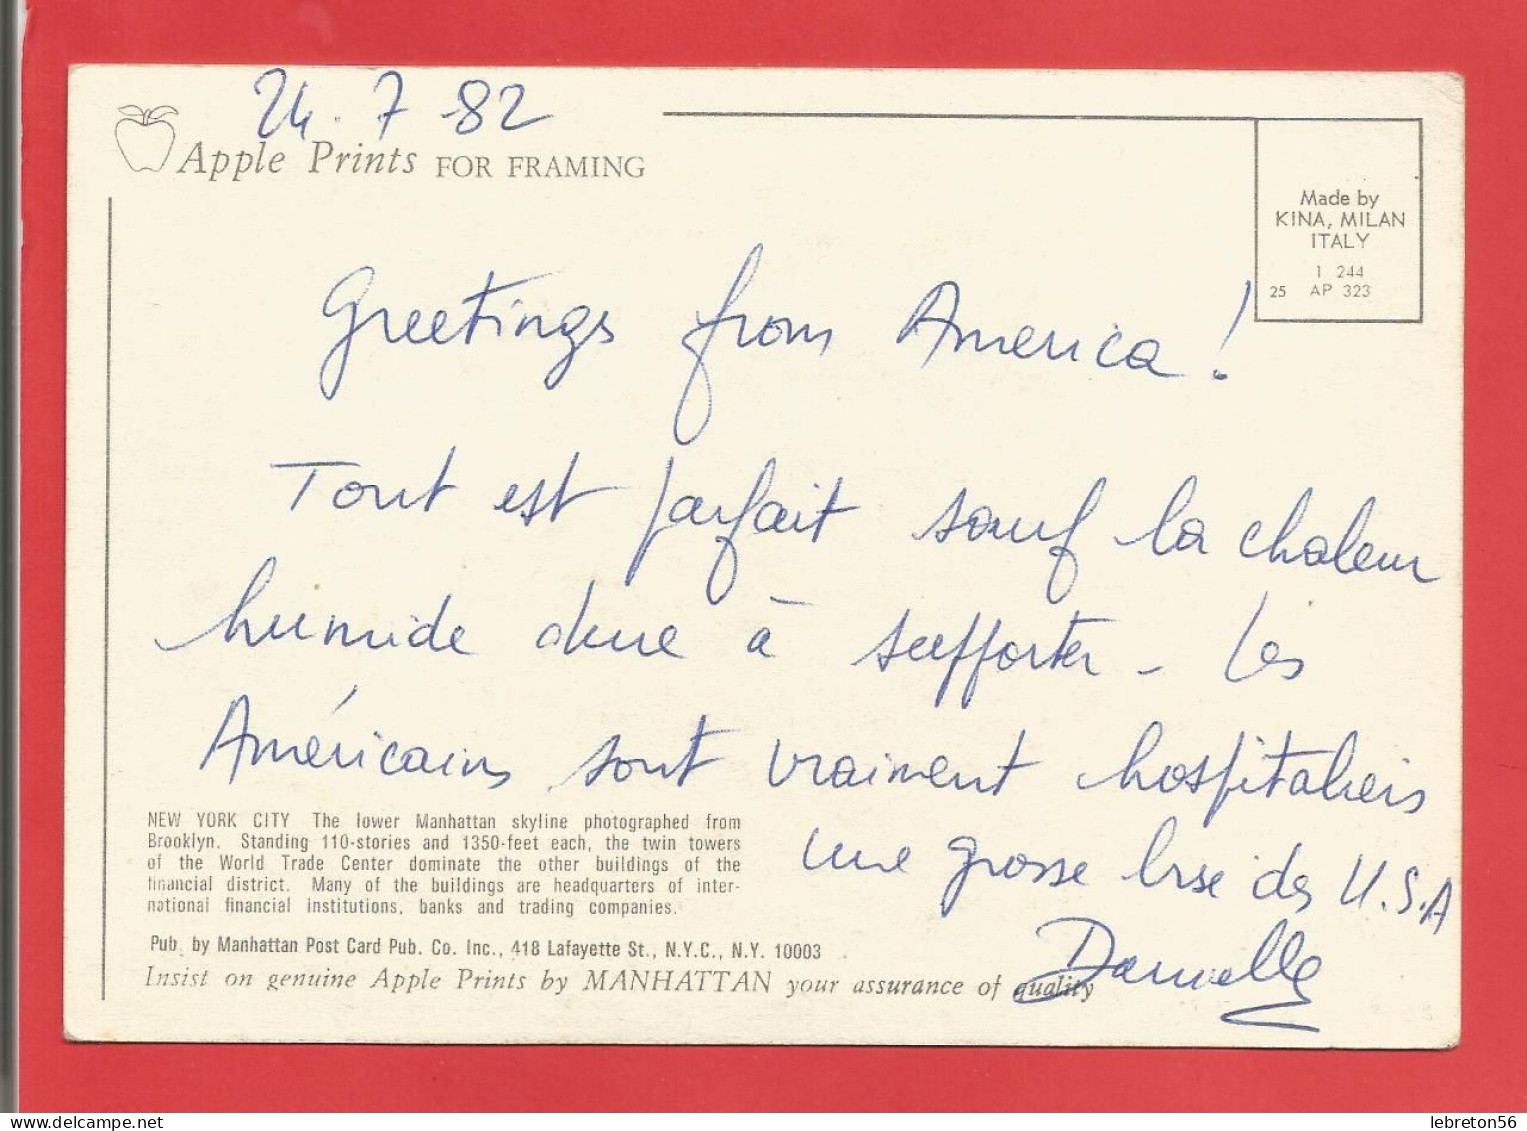 24. 7 -82
Apple Prints FOR FRAMING
Made by
KINA, MILAN
ITALY
1 244
25 AP 323
Greetings from America !
Tout est parfait sauf la chaleur
humide dure à supporter - Les
Américains sont vraiment hospitaliers
une grosse bise des U.S.A
Danielle
NEW YORK CITY The lower Manhattan skyline photographed from
Brooklyn. Standing 110-stories and 1350-feet each, the twin towers
of the World Trade Center dominate the other buildings of the
financial district. Many of the buildings are headquarters of inter-
national financial institutions, banks and trading companies.
Pub. by Manhattan Post Card Pub. Co. Inc., 418 Lafayette St., N.Y.C., N.Y. 10003
Insist on genuine Apple Prints by MANHATTAN your assurance of quality
lebreton56